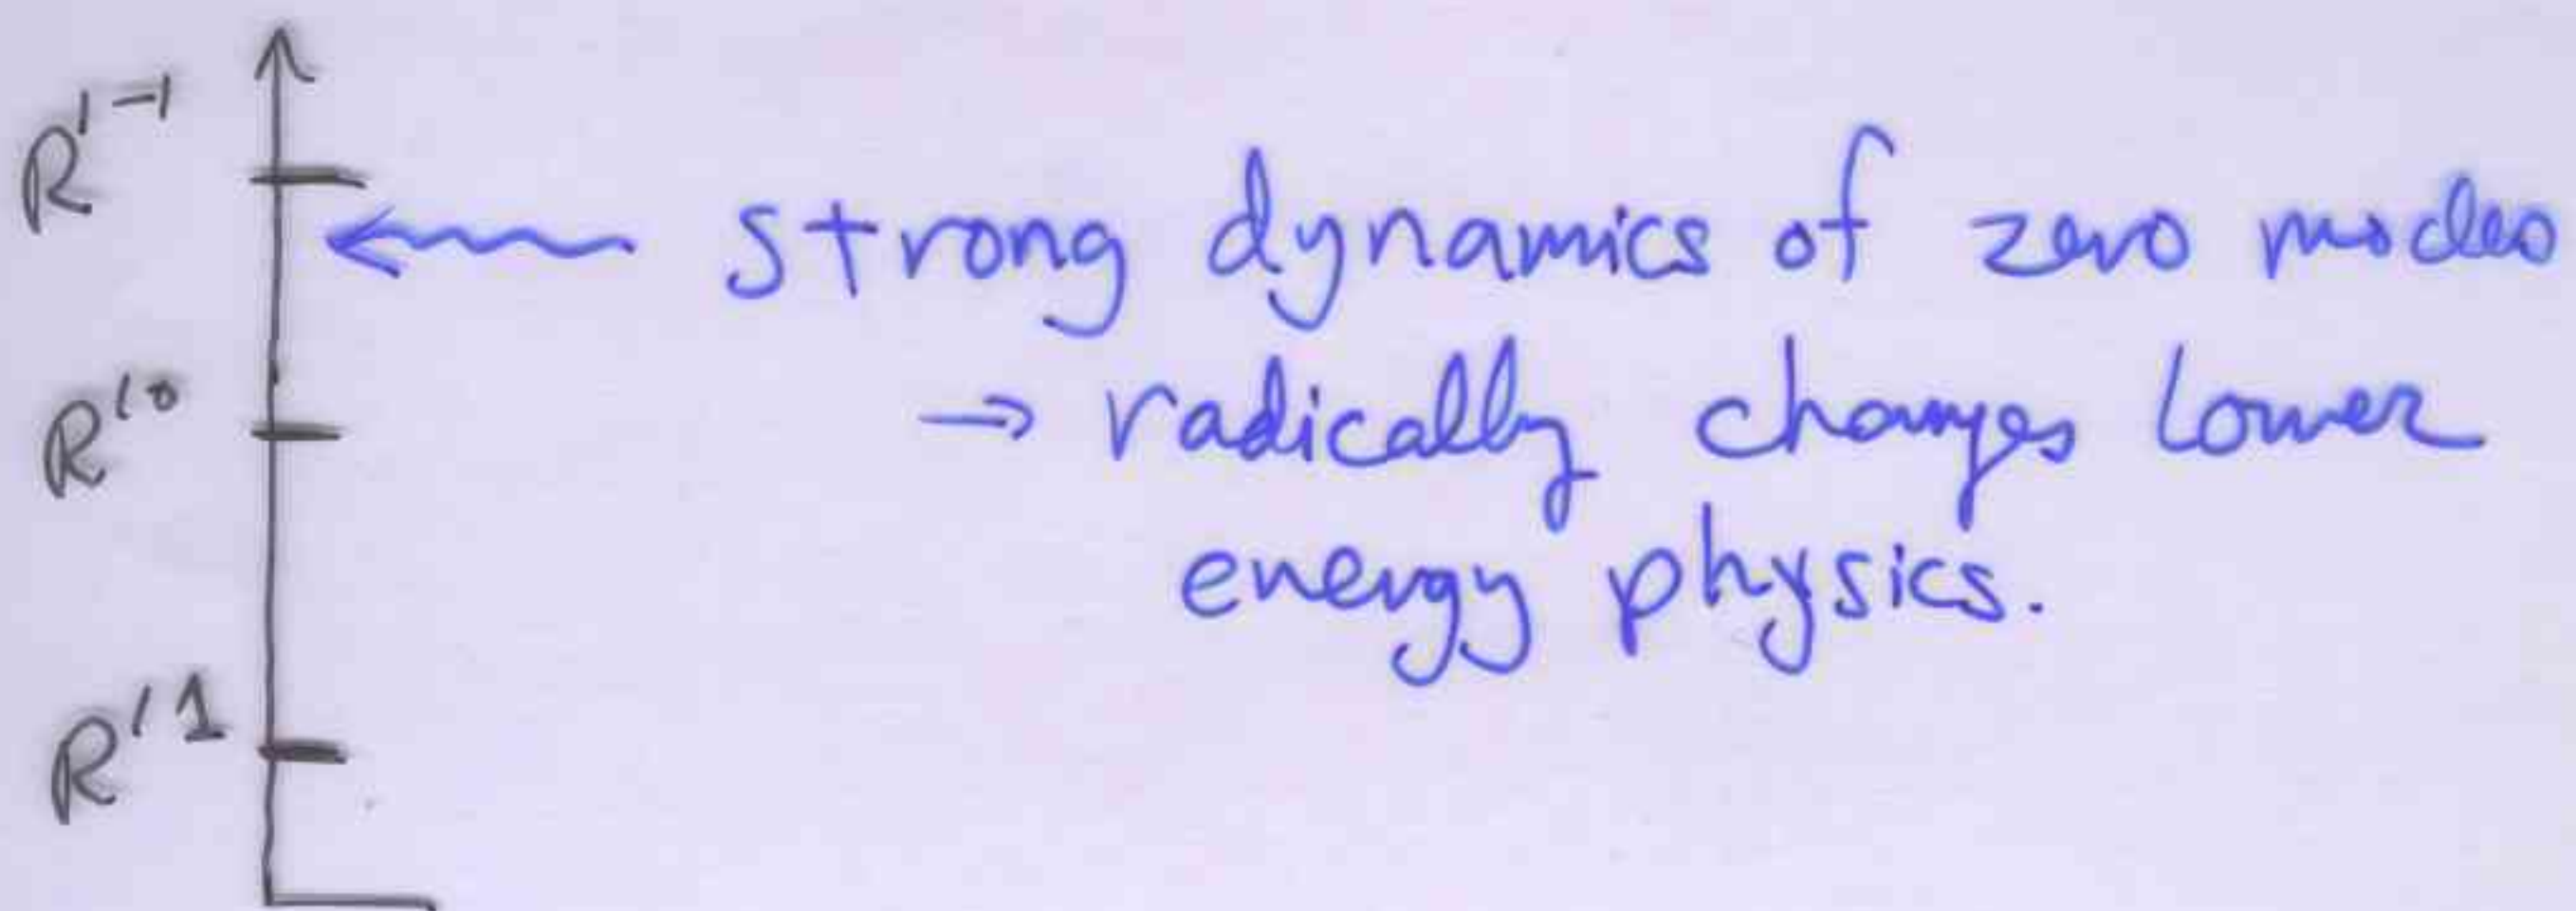 R'⁻¹
← strong dynamics of zero modes
R'⁰
→ radically changes lower
energy physics.
R'¹